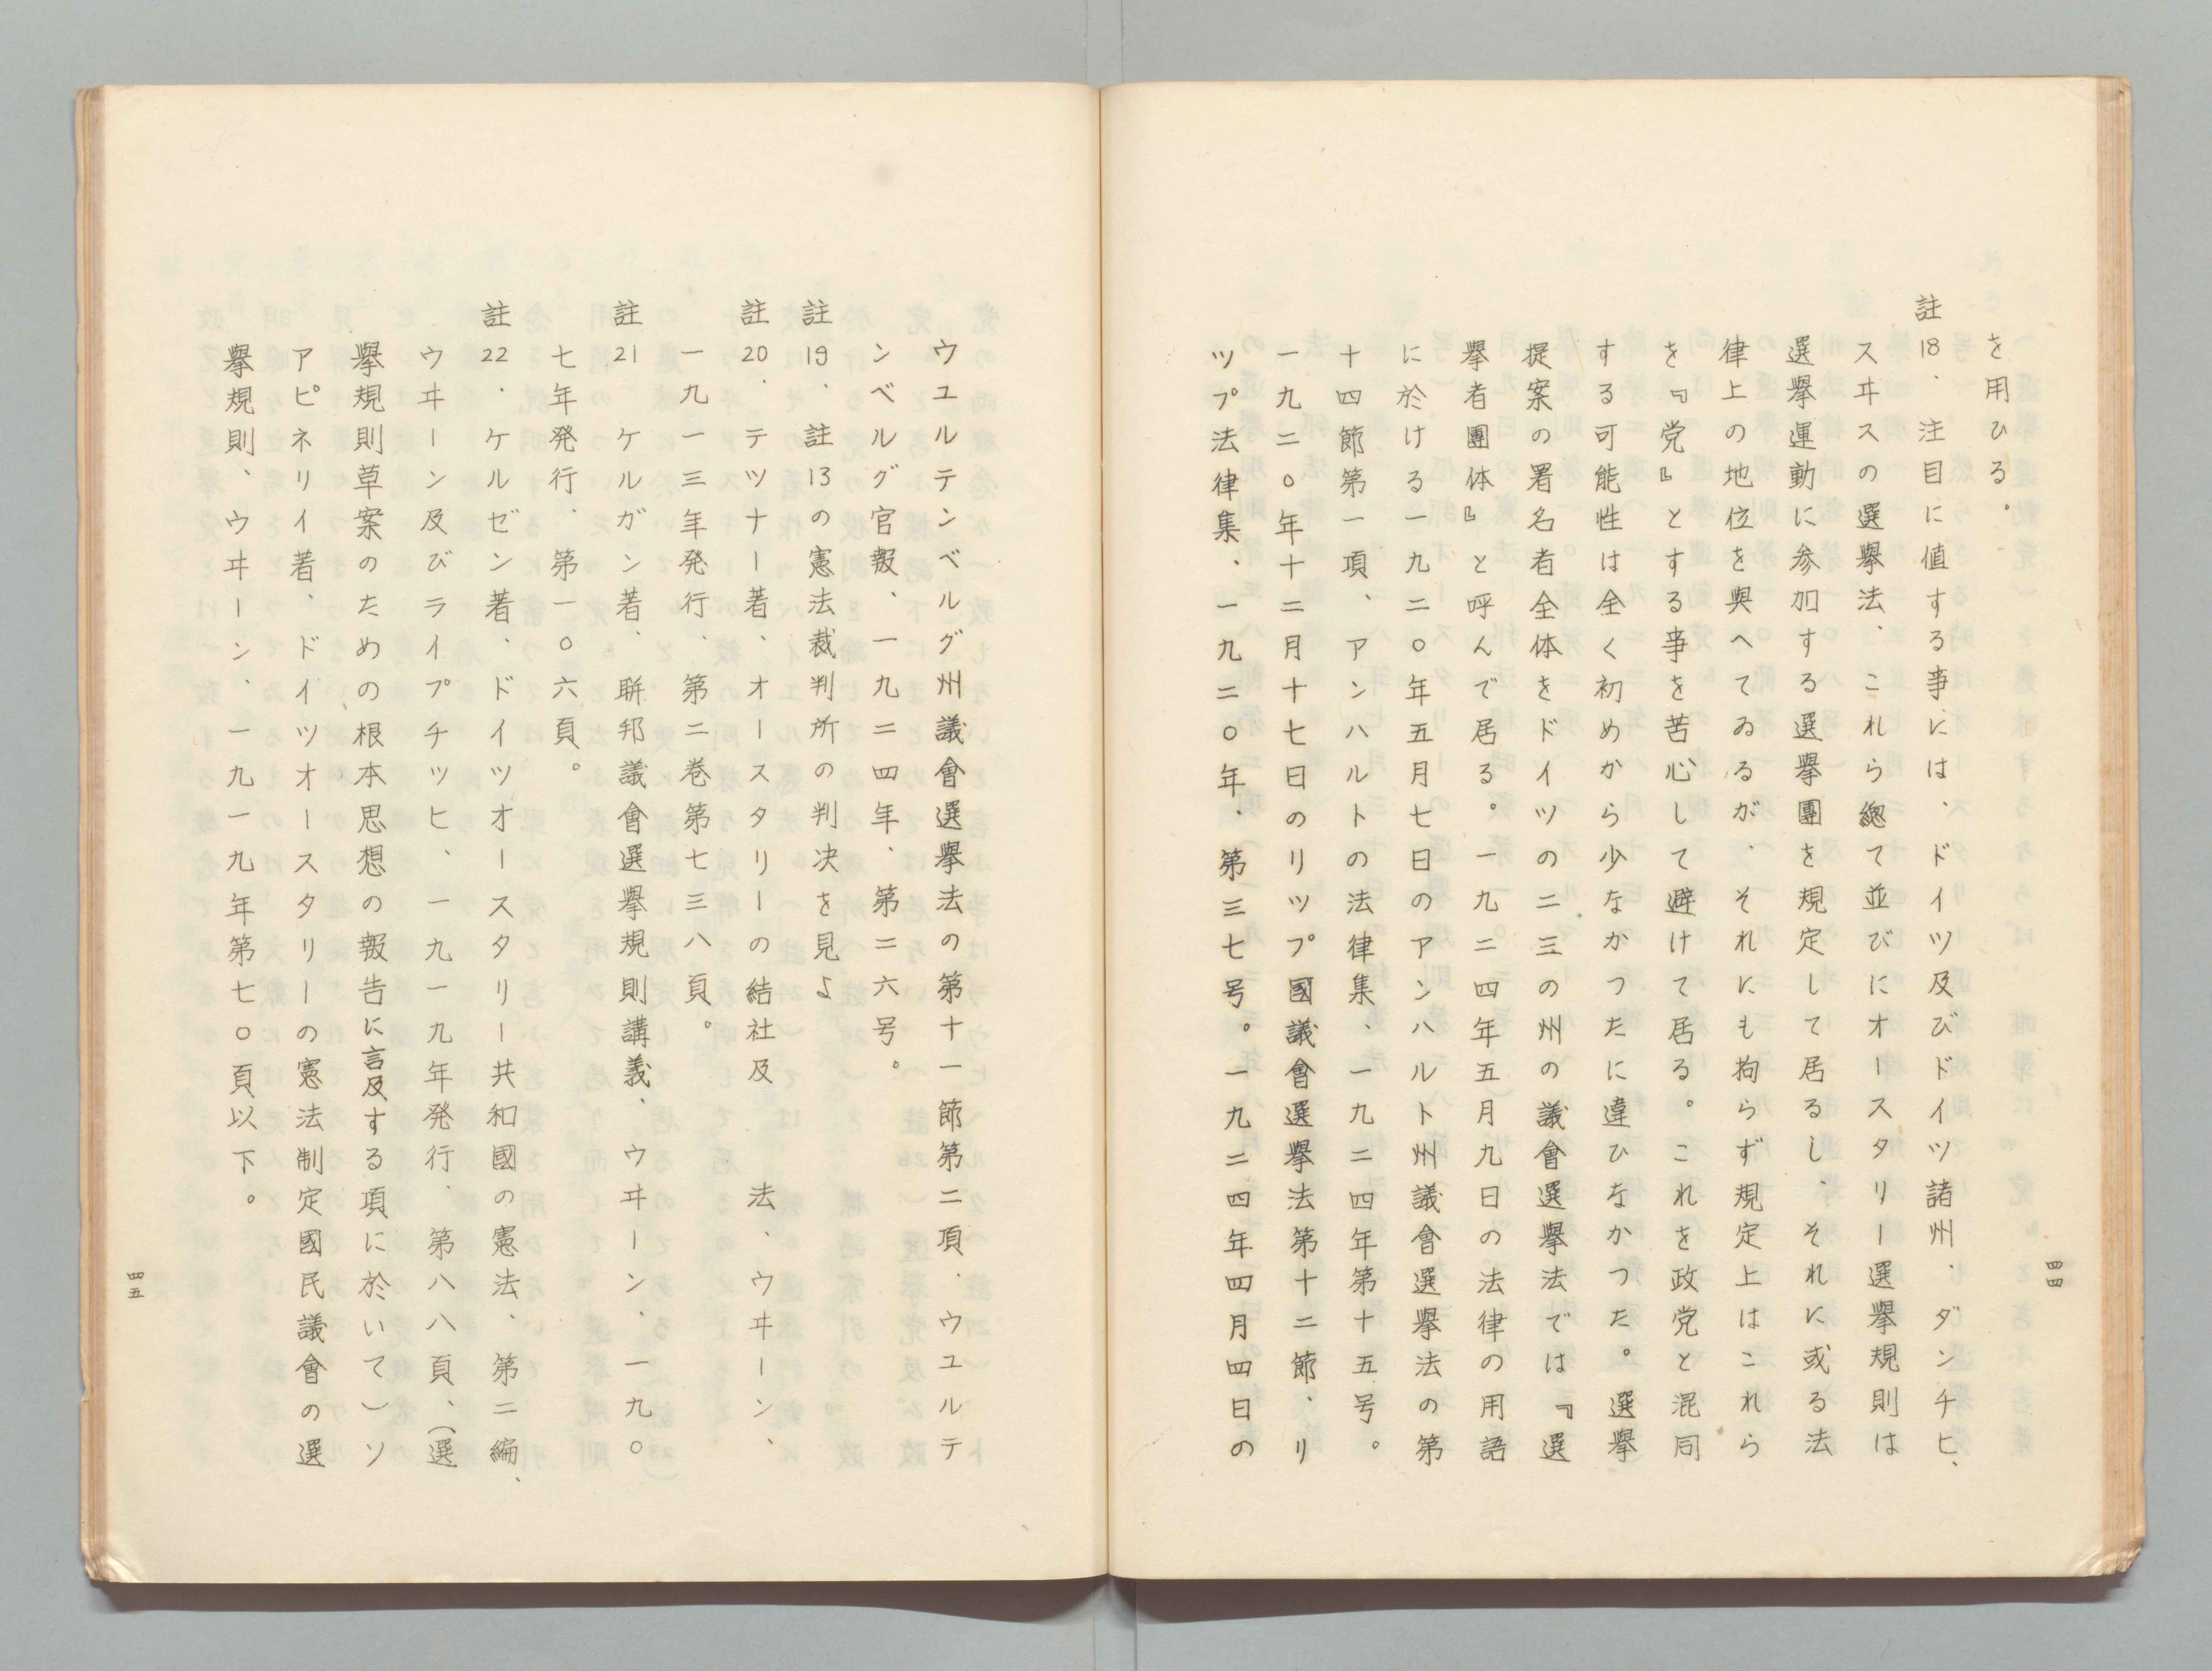 を用ひる。
註18、注目に値する事には、ドイツ及びドイツ諸州、ダンチヒ、
スヰスの選擧法、これら總て並びにオースタリー選擧規則は
選擧運動に参加する選擧團を規定して居るし、それに或る法
律上の地位を與へてゐるが、それにも拘らず規定上はこれら
を『党』とする事を苦心して避けて居る。これを政党と混同
する可能性は全く初めから少なかつたに違ひなかつた。選擧
提案の署名者全体をドイツの二三の州の議會選擧法では『選
擧者團体』と呼んで居る。一九二四年五月九日の法律の用語
に於ける一九二〇年五月七日のアンハルト州議會選擧法の第
十四節第一項、アンハルトの法律集、一九二四年第十五号。
一九二〇年十二月十七日のリツプ國議會選擧法第十二節、リ
ツプ法律集、一九二〇年、第三七号。一九二四年四月四日の
四四
ウユルテンベルグ州議會選擧法の第十一節第二項、ウユルテ
ンベルグ官報、一九二四年、第二六号。
註19、註13の憲法裁判所の判决を見よ
註20、テツナー著、オースタリーの結社及　法、ウヰーン、
一九一三年発行、第二巻第七三八頁。
註21　ケルガン著、聯邦議會選擧規則講義、ウヰーン、一九〇
七年発行、第一〇六頁。
註22、ケルゼン著、ドイツオースタリー共和國の憲法、第二編、
ウヰーン及びライプチツヒ、一九一九年発行、第八八頁、(選
擧規則草案のための根本思想の報告に言及する項に於いて)ソ
アピネリイ著、ドイツオースタリーの憲法制定國民議會の選
擧規則、ウヰーン、一九一九年第七〇頁以下。
四五